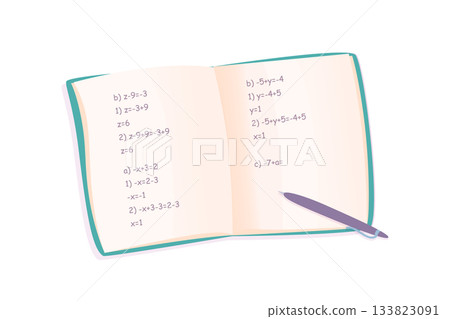 b) z-9=-3
1) z=-3+9
z=6
2) z-9+9=-3+9
z=6
a) -x+3=2
1) -x=2-3
-x=-1
2) -x+3-3=2-3
x=1
b) -5+y=-4
1) y=-4+5
y=1
2) -5+y+5=-4+5
x=1
c) -7+a=
PIXTA
pixta.jp - 133823091